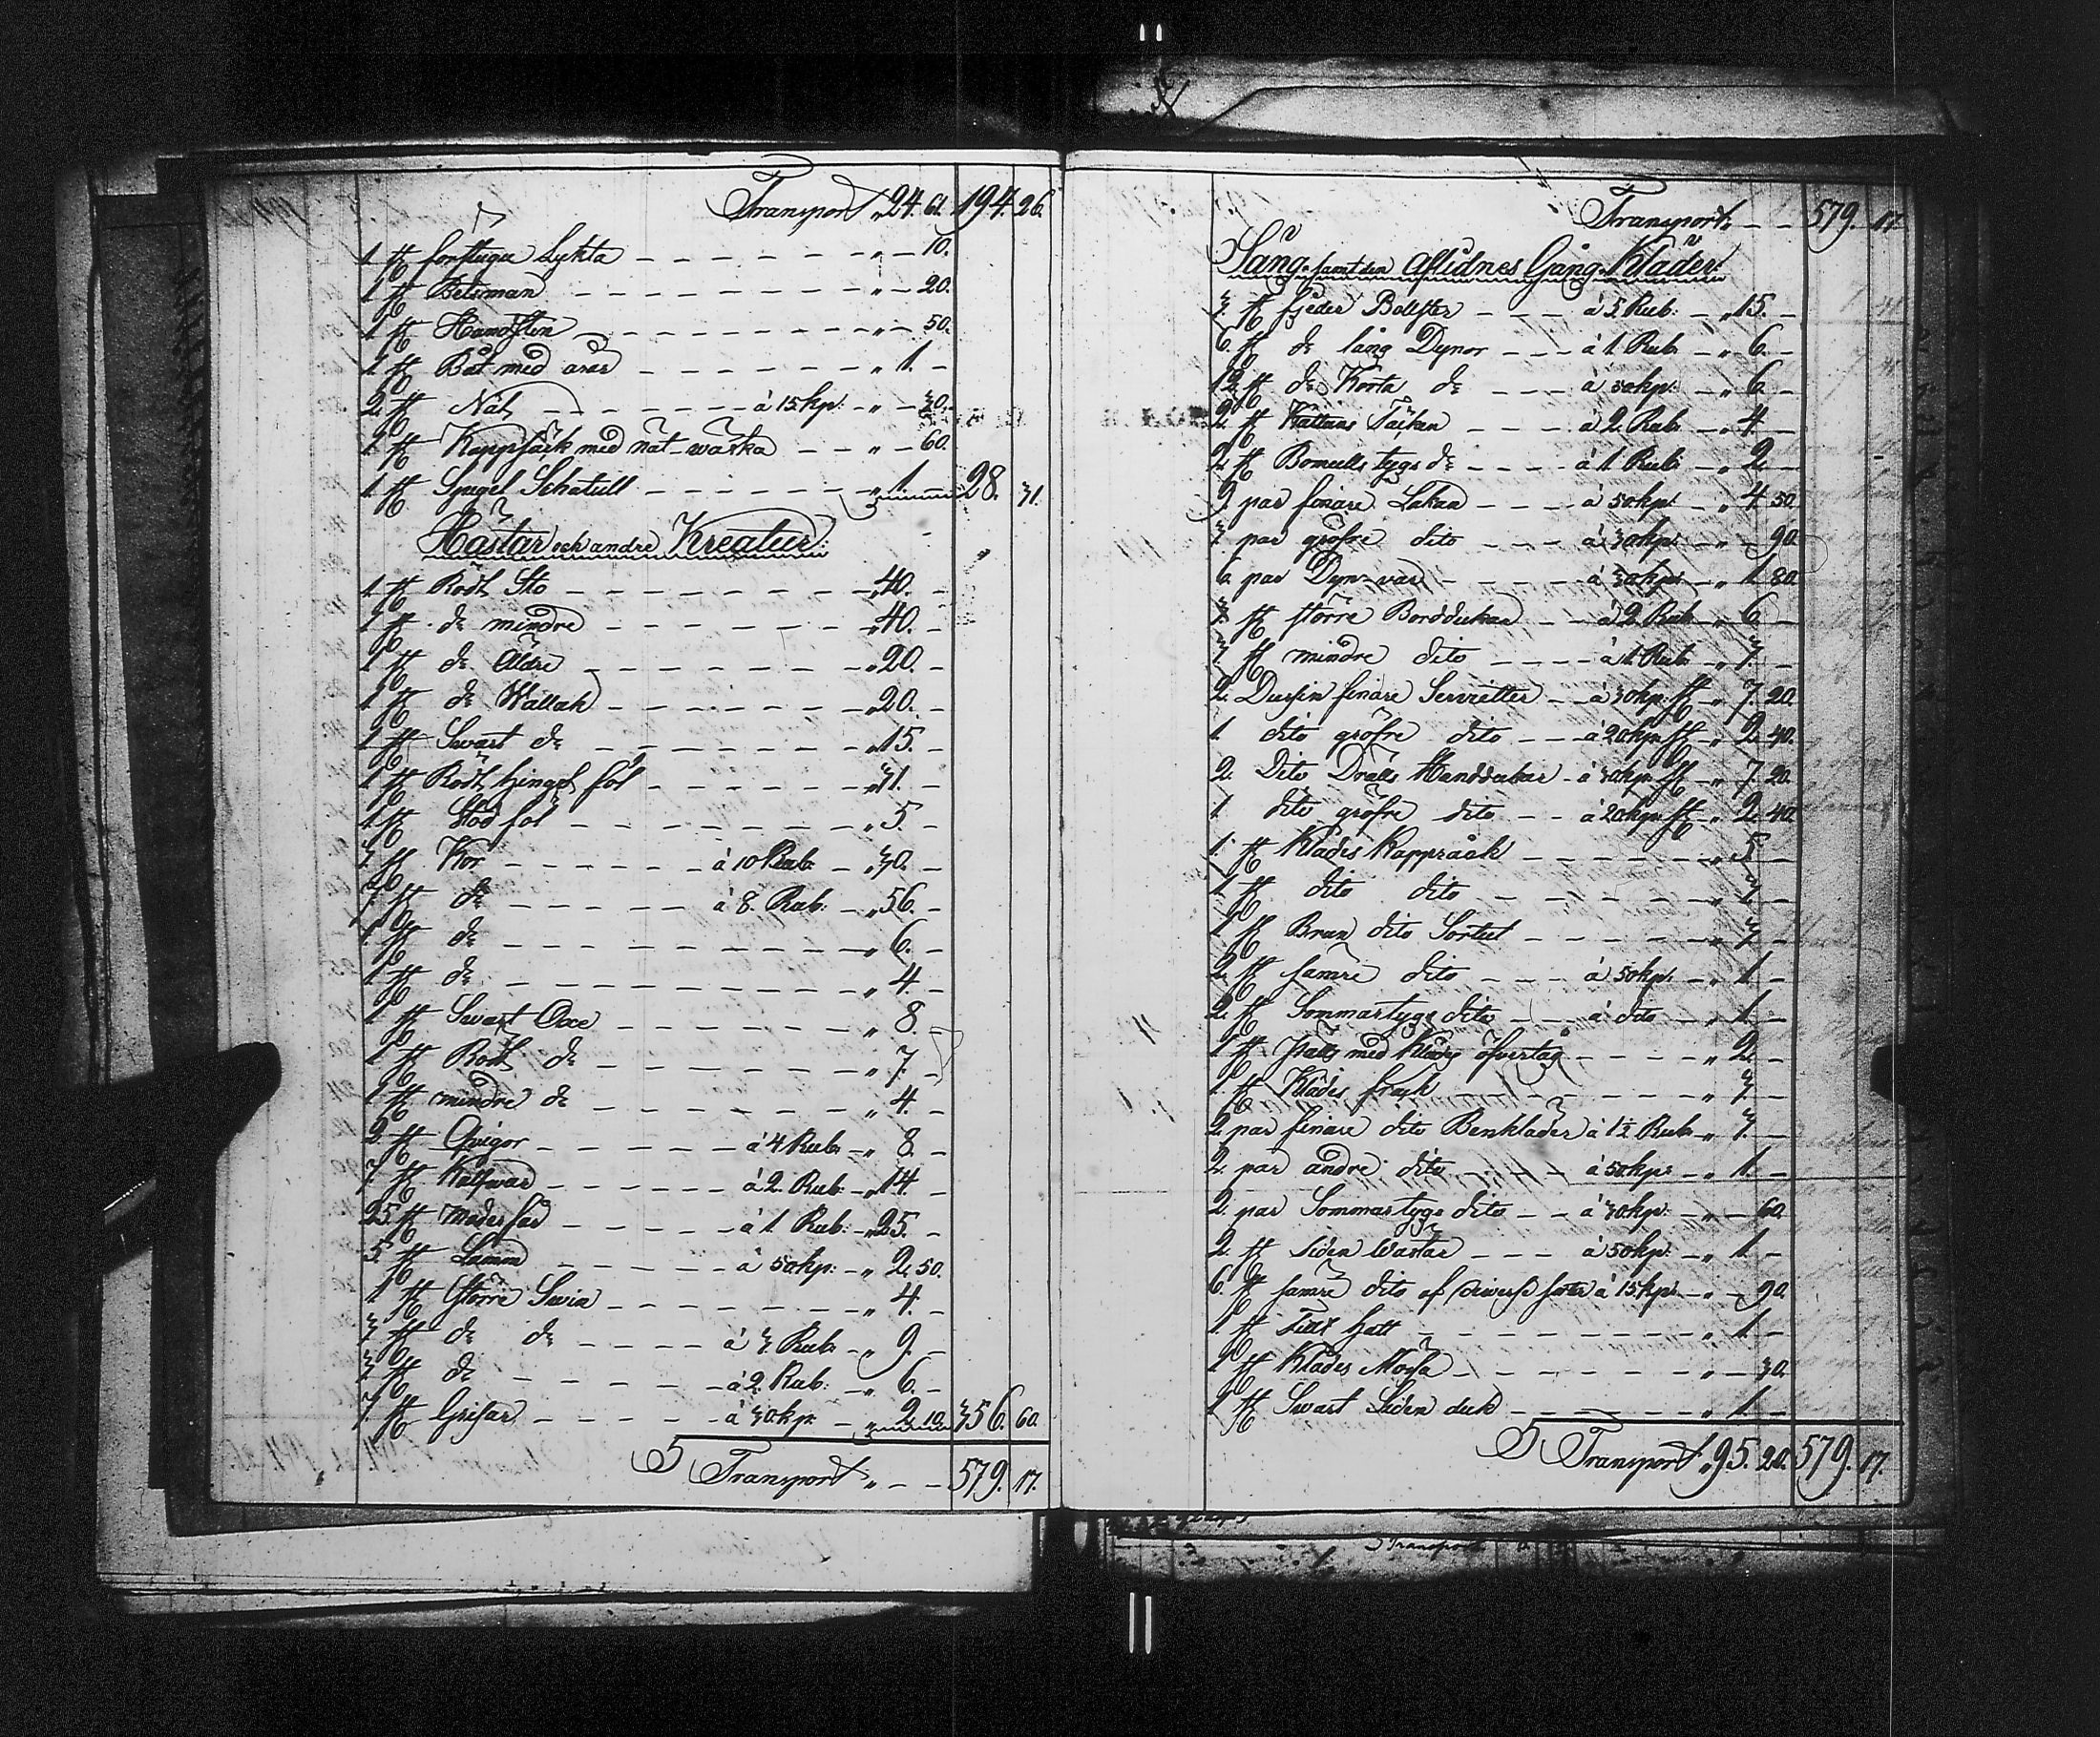 Transport „ 24. 61. 194. 26.
1 st förstuga Lykta — — „ — 10.
1 st Betsman — — „ — 20.
1 st Handsten — — „ — 50.
1 st Båt med årar — — „ 1. —
2 st Nät — — à 15 kp: — „ — 30.
1 st Kappsäck med nät-wärka — — „ — 60.
1 st Spegel Schatull — — „ 1. — 28. 31.
Hästar och andre Kreatur:
1 st Rödt Sto — — „ 40. —
1 st do mindre — — „ 40. —
1 st do Äldre — — „ 20. —
1 st do Wallach — — „ 20. —
1 st Swart do — — „ 15. —
1 st Rödt hingst föl — — „ 31. —
1 st Stod föl — — „ 5. —
3 st Kor — — à 10 Rub: — „ 30. —
7 st do — — à 8. Rub: — „ 56. —
1 st do — — „ 6. —
1 st do — — „ 4. —
1 st Swart Oxe — — „ 8. —
1 st Rödt do — — „ 7. —
1 st mindre do — — „ 4. —
2 st Qvigor — — à 4 Rub: — „ 8. —
7 st Kalfwar — — à 2. Rub: — „ 14. —
25 st moderfår — — à 1 Rub: — „ 25. —
5 st Lamm — — à 50 kp: — „ 2. 50.
1 st Större Swin — — „ 4. —
3 st do do — — à 3 Rub: — „ 9. —
3 st do — — à 2. Rub: — „ 6. —
7 st Grisar — — à 30 kp: — „ 2. 10. 356. 60.
S Transport „ — — 579. 17.
Transport „ — — 579. 17.
Säng- samt den Aflidnes Gång-Kläder:
3 st fjeder Bolster — — à 5 Rub: — „ 15. —
6. st do lång Dynor — — à 1 Rub: — „ 6. —
12 st do Korta do — — à 50 kp: — „ 6. —
2. st Kattuns Täcken — — à 2. Rub: — „ 4. —
2. st Bomulls tygs do — — à 1 Rub: — „ 2. —
9. par finare Lakan — — à 50 kp: — „ 4. 50.
3. par gröfre dito — — à 30 kp: — „ — 90.
6. par Dyn-var — — à 30 kp: — „ 1. 80.
3 st större Borddukar — — à 2 Rub: — „ 6. —
3 st mindre dito — — à 1 Rub: — „ 3. —
2. Dussin finare Servietter — — à 30 kp: st „ 7. 20.
1 dito gröfre dito — — à 20 kp: st „ 2. 40.
2. Dito Drälls Handdukar — à 30 kp: st „ 7. 20.
1 dito gröfre dito — — à 20 kp: st „ 2. 40.
1 st Klädes Kappråck — — „ 5. —
1 st dito dito — — „
1 st Brun dito Sortut — — „ 3. —
2 st sämre dito — — à 50 kp: — „ 1. —
2. st Sommartygs dito — — à dito — „ 1. —
1 st päls med Klädes öfvertåg — — „ 2. —
1 st Klädes frack — — „ 3. —
2. par finare dito Benkläder à 1½ Rub: — „ 3. —
2. par andre dito — — à 50 kp: — „ 1. —
2. par Sommartygs dito — — à 30 kp: — „ — 60.
2. st Siden Wästar — — à 50 kp: — „ 1. —
6. st sämre dito af diverse sorter à 15 kp: — „ — 90.
1. st Filt hatt — — „ 1. —
1 st Klädes Mössa — — „ — 30.
1 st Swart Siden duk — — „ 1. —
S Transport „ 95. 20. 579. 17.